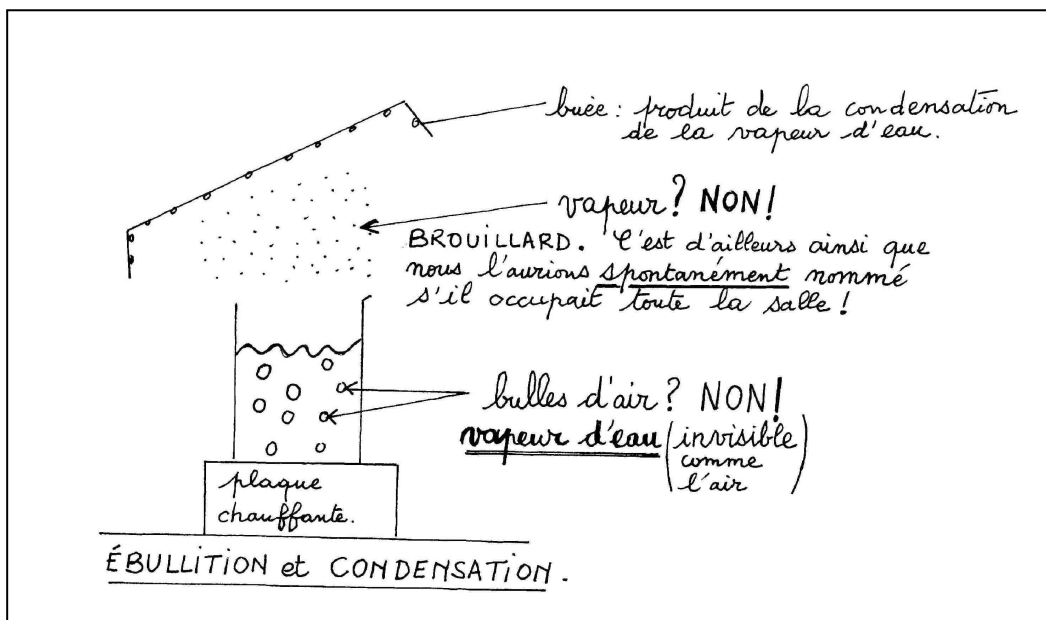 buée : produit de la condensation
de la vapeur d'eau.
vapeur? NON!
BROUILLARD. C'est d'ailleurs ainsi que
nous l'aurions spontanément nommé
s'il occupait toute la salle !
bulles d'air ? NON!
vapeur d'eau (invisible
comme
l'air)
plaque
chauffante.
ÉBULLITION et CONDENSATION.